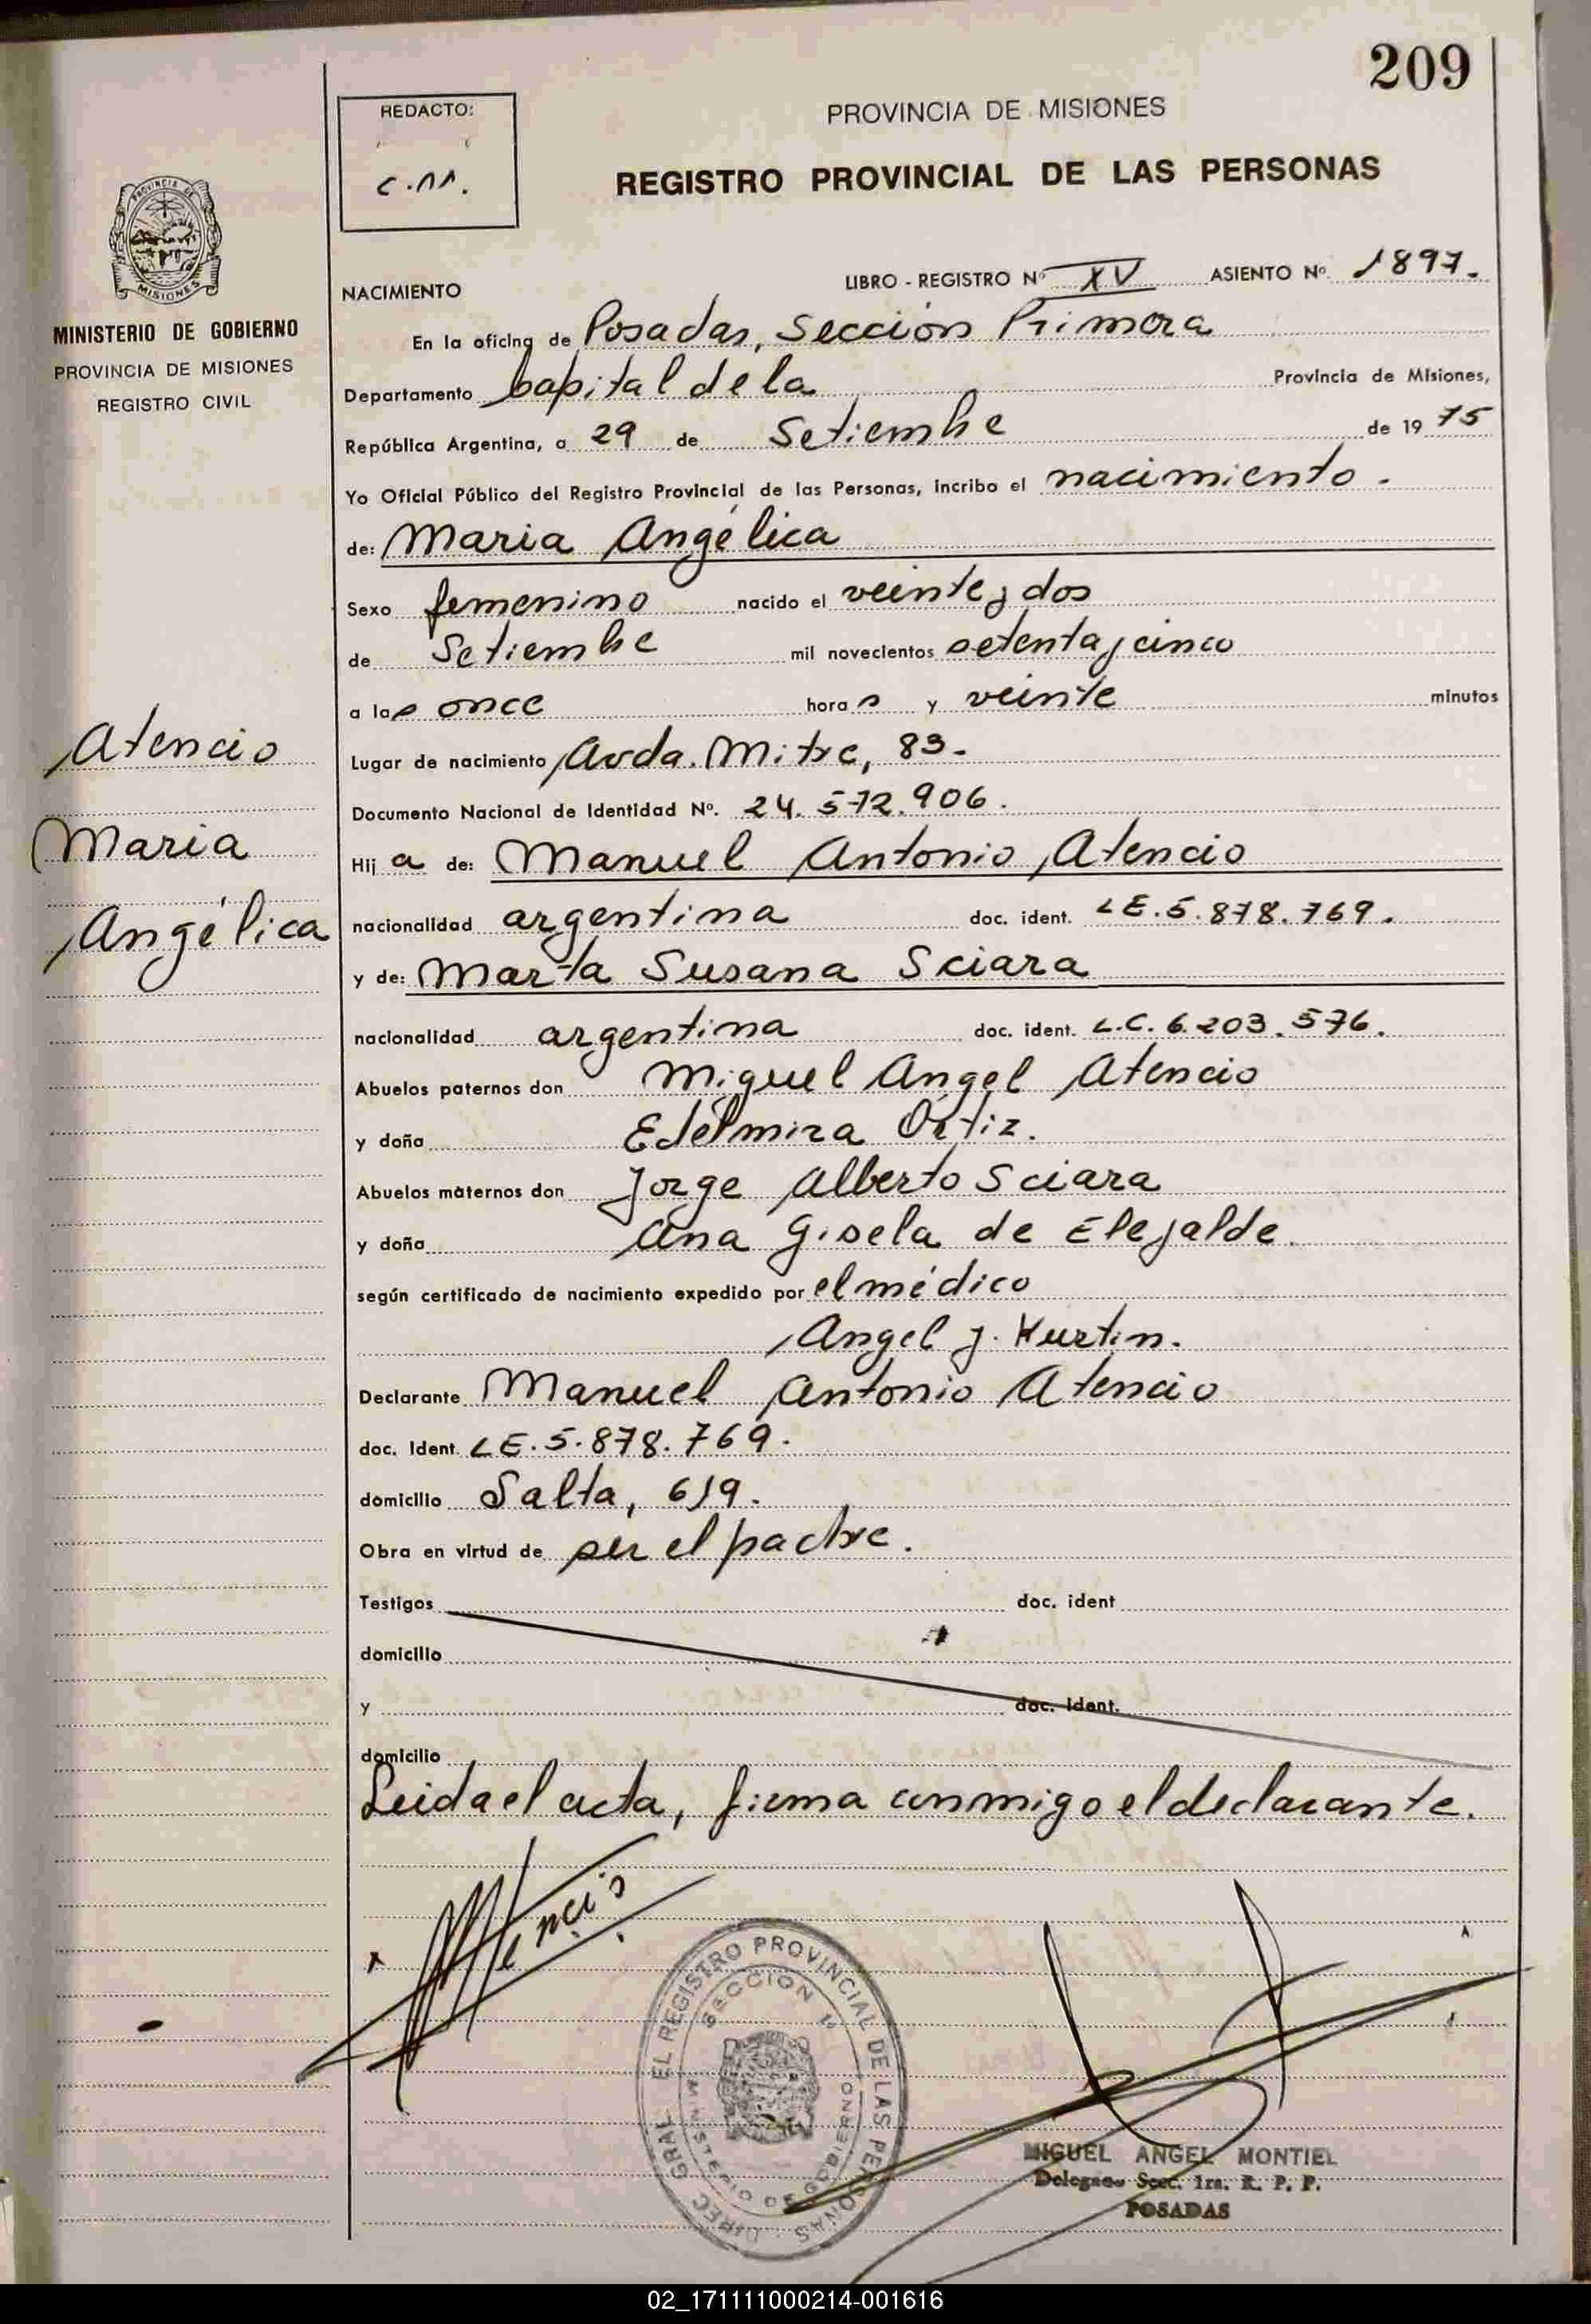 209
REDACTO:
PROVINCIA DE MISIONES
REGISTRO PROVINCIAL DE LAS PERSONAS
PROVINCIA DE
MISIONES
MINISTERIO DE GOBIERNO
PROVINCIA DE MISIONES
REGISTRO CIVIL
NACIMIENTO
LIBRO - REGISTRO Nº XV ASIENTO Nº 1897.
En la oficina de Posadas, Sección Primera
Departamento Capital de la Provincia de Misiones,
República Argentina, a 29 de Setiembre de 1975
Yo Oficial Público del Registro Provincial de las Personas, incribo el nacimiento.
de: Maria Angélica
Sexo femenino nacido el veinte y dos
de Setiembre mil novecientos setenta y cinco
a las once horas y veinte minutos
Lugar de nacimiento Avda. Mitre, 83.
Documento Nacional de Identidad Nº. 24.572.906.
Hija de: Manuel Antonio Atencio
nacionalidad argentina doc. ident. LE.5.878.769.
y de: Marta Susana Sciara
nacionalidad argentina doc. ident. L.C. 6.203.576.
Abuelos paternos don Miguel Angel Atencio
y doña Edelmira Ortiz.
Abuelos maternos don Jorge Alberto Sciara
y doña Ana Gisela de Elejalde.
según certificado de nacimiento expedido por el médico
Angel J. Kurtin.
Declarante Manuel Antonio Atencio
doc. Ident. LE.5.878.769.
domicilio Salta, 619.
Obra en virtud de ser el padre.
Testigos doc. ident
domicilio
y doc. ident.
domicilio
Leida el acta, firma conmigo el declarante.
Atencio
Maria
Angélica
Atencio
DIREC. GRAL. EL REGISTRO PROVINCIAL DE LAS PERSONAS
SECCION 1ª
MINISTERIO DE GOBIERNO
MIGUEL ANGEL MONTIEL
Delegado Secc. 1ra. R. P. P.
POSADAS
02_171111000214-001616